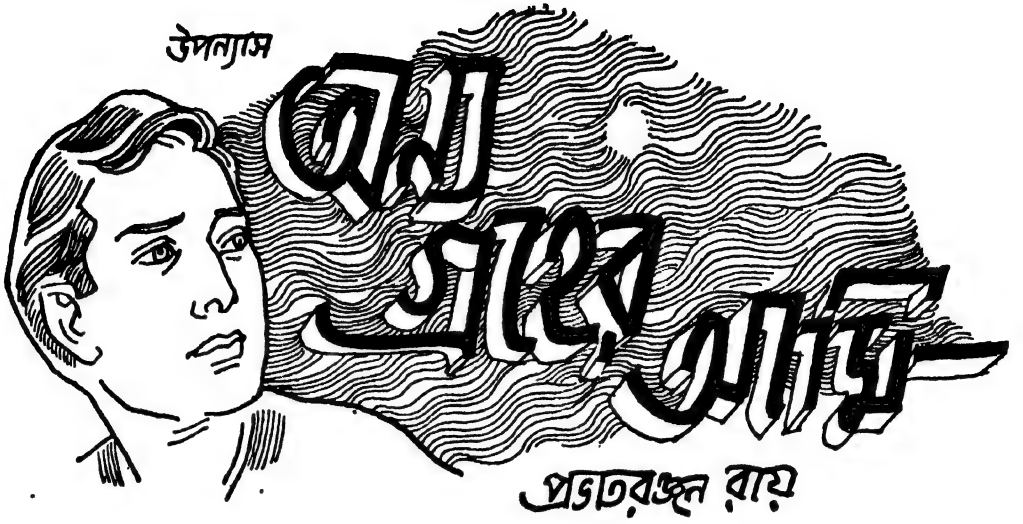 উপন্যাস
অন্য
গ্রহের
প্রভাতরঞ্জন রায়